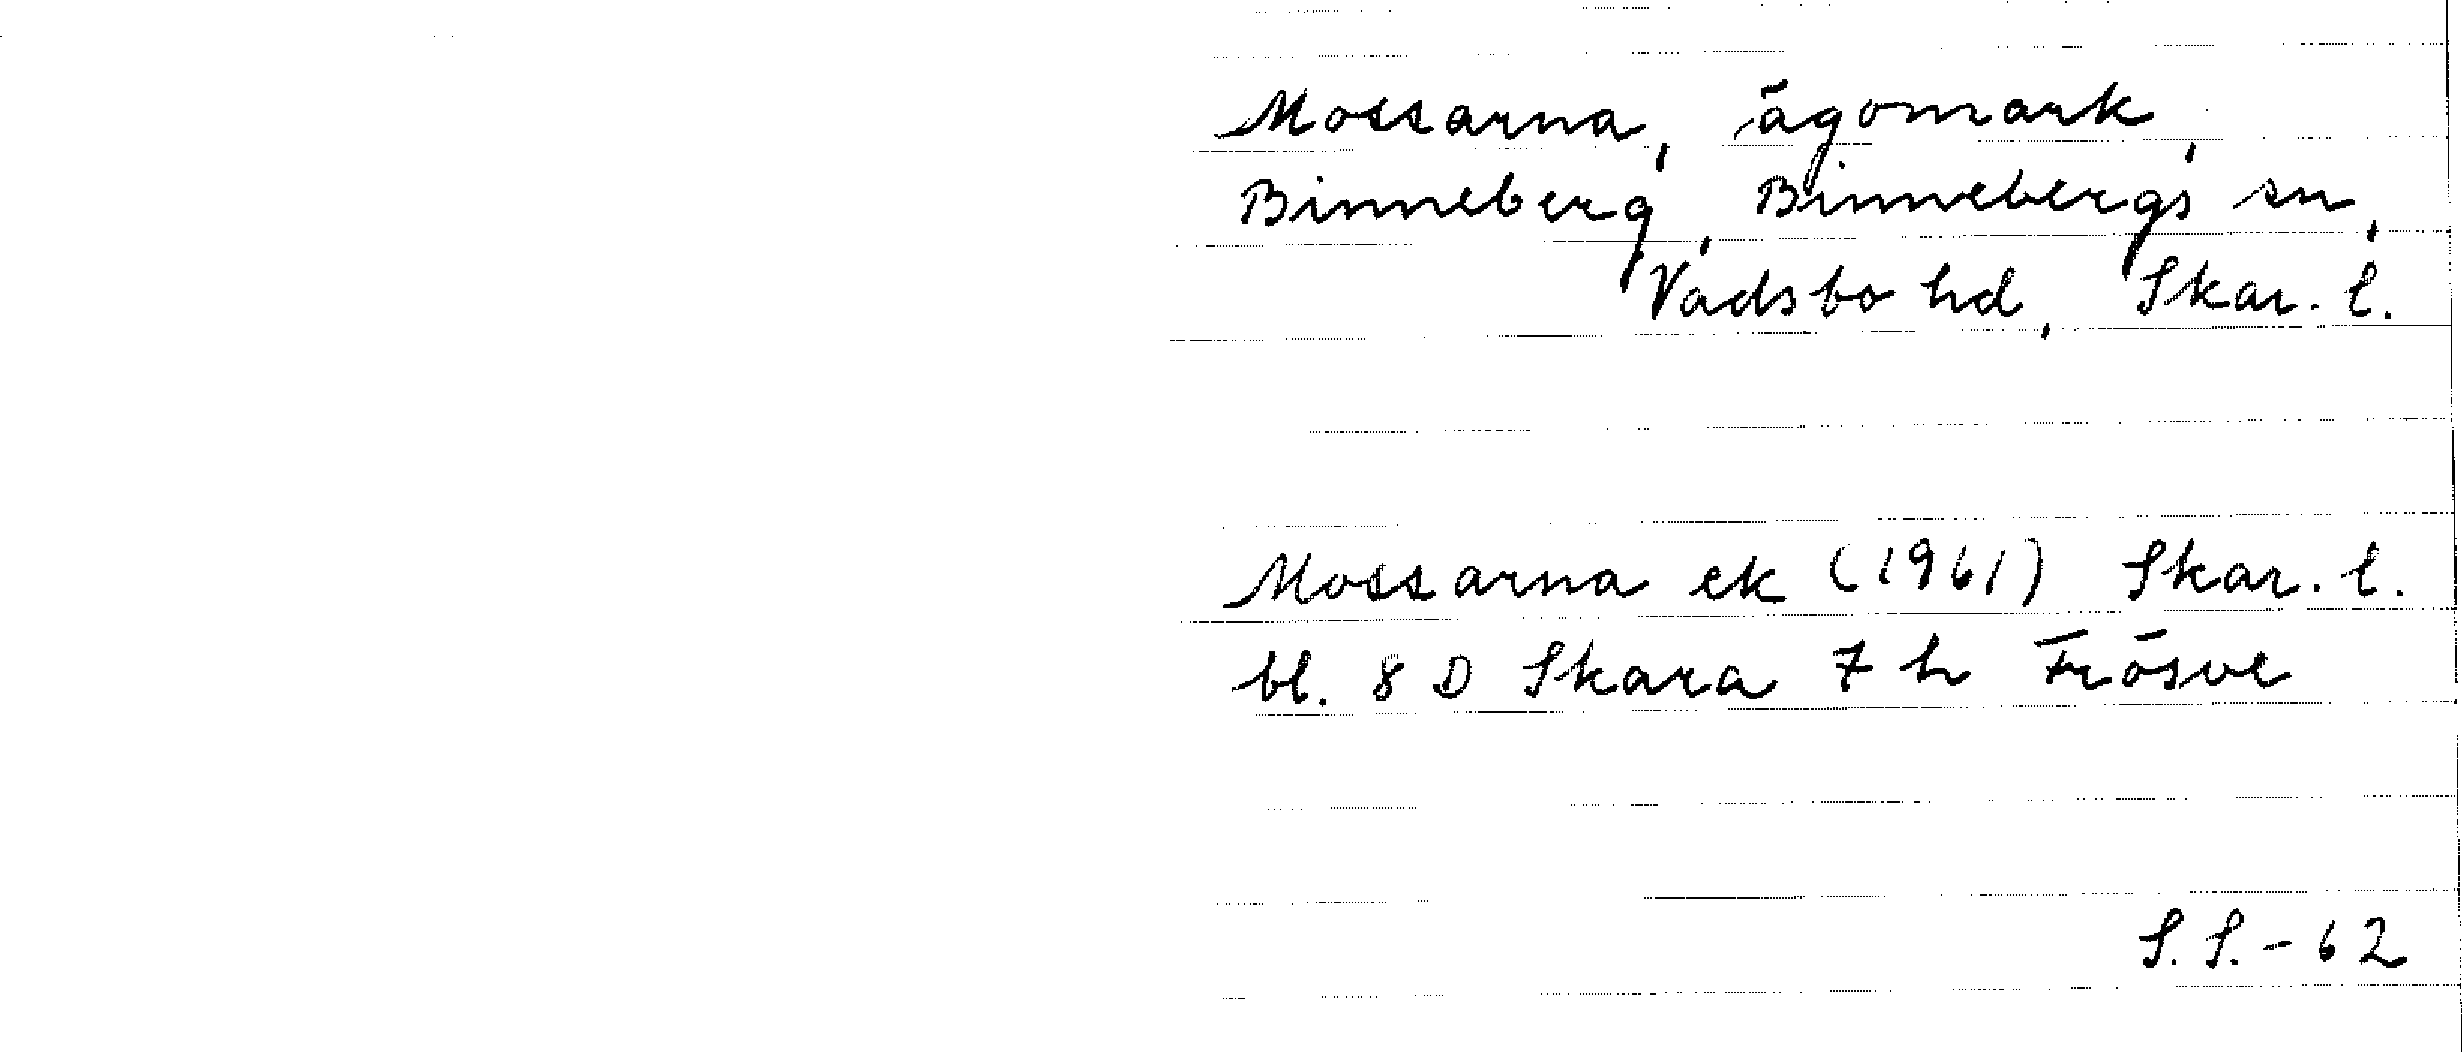 Mossarna, ägomark,
Binneberg, Binnebergs sn,
Vadsbo hd, Skar. l.
Mossarna ek (1961) Skar. l.
bl. 8 D Skara 7 h Frösve
S. S. - 62